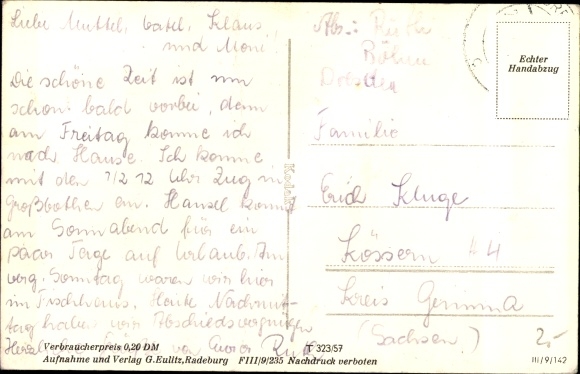 Liebe Muttel, Vatel, Klaus
und Moni!
Die schöne Zeit ist nun
schon bald vorbei, denn
am Freitag komme ich
nach Hause. Ich komme
mit den 1/2 12 Uhr Zug in
Großbothen an. Hansel kommt
am Sonnabend für ein
paar Tage auf Urlaub. Am
verg. Sonntag waren wir hier
im Fischhaus. Heute Nachmit-
tag haben wir Abschiedsvergnügen
Herzl. von Eurer Ruth
Abs.: Ruth
Böhm
Dresden
Echter
Handabzug
Familie
Erich Kluge
Kössern 44
Kreis Grimma
(Sachsen)
Verbraucherpreis 0,20 DM
Aufnahme und Verlag G.Eulitz, Radeburg FIII/9/235 Nachdruck verboten
T 323/57
III/9/142